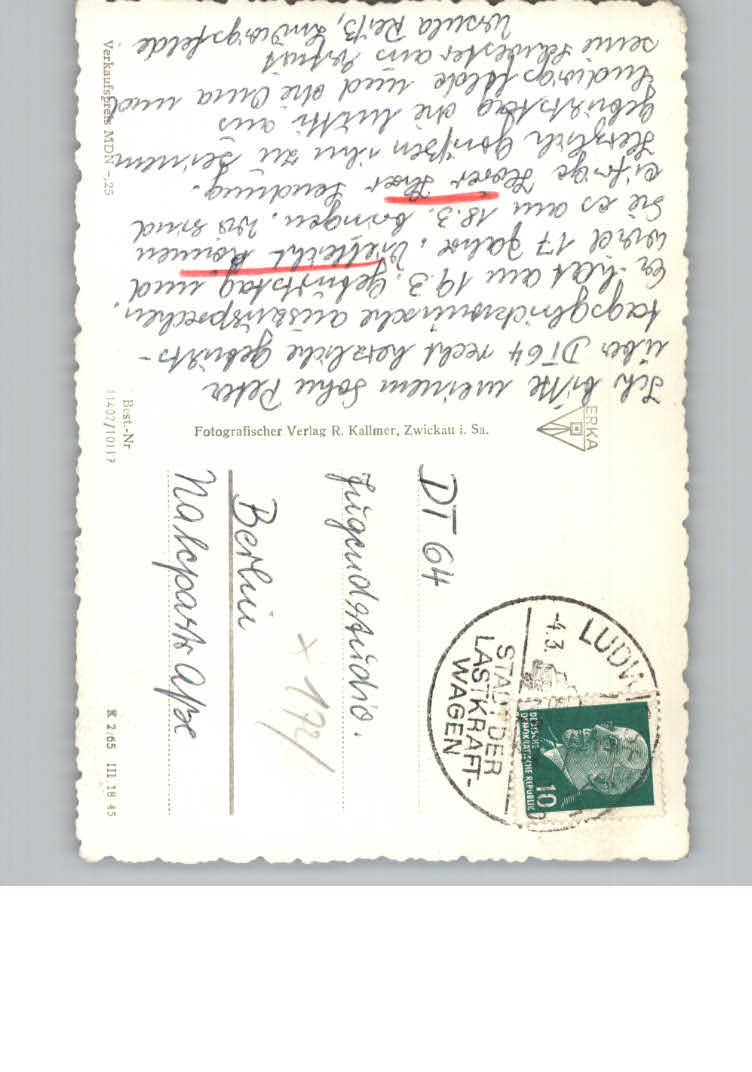 Ich bitte meinem Sohn Peter
über DT 64 recht herzliche Geburts-
tagsglückwünsche auszusprechen.
Er hat am 19.3. Geburtstag und
wird 17 Jahre. Vielleicht können
Sie es am 18.3. bringen. Wir sind
eifrige Hörer Ihrer Sendung.
Herzlich grüßen ihn zu seinem
Geburtstag die Mutti aus
Ludwigsfelde und die Oma und
seine Schwester aus Erfurt
Ursula Reitz, Ludwigsfelde
ERKA
Fotografischer Verlag R. Kallmer, Zwickau i. Sa.
Best.-Nr
11407/10117
Verkaufspreis MDN -,25
DT 64
Jugendstudio.
Berlin
Nalepastr.
x 172/
LUDW
-4.3.
STADT DER
LASTKRAFT-
WAGEN
DEUTSCHE
DEMOKRATISCHE REPUBLIK
10
K 2/65 III 18 45